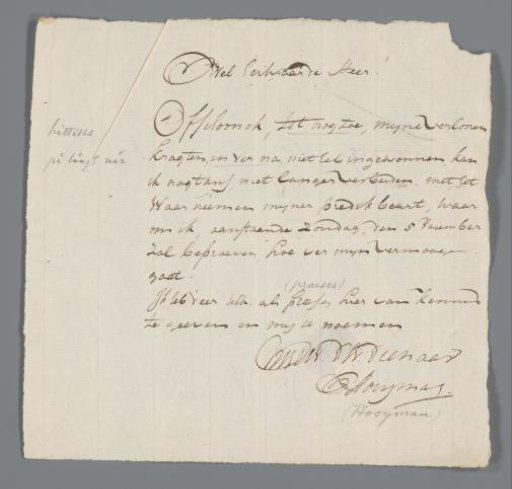 Wel Eerwaarde Heer!
Offschoon ik, tot nog toe, mijne verloren
kragten, in ver na, niet heb ingewonnen kan
ik nogtans niet langer verbeiden, met het
Waarneemen mijner predikbeurt, waar
om ik, aanstaende Zondag, den 5 December
Zal beproeven, hoe ver mijn vermoogen
gaat.
(praeses)
Ik heb d'eer UEw. als Praeses hier van kennis
te geeven en mij te noemen
UwEw. D.W. Dienaar
Wooyman.
(Wooyman)